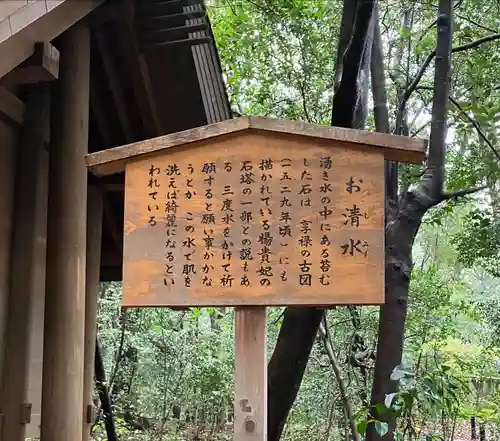 お清水
しみず
湧き水の中にある苔む
した石は 享禄の古図
（一五二九年頃）にも
描かれている楊貴妃の
石塔の一部との説もあ
る 三度水をかけて祈
願すると願い事がかな
うとか この水で肌を
洗えば綺麗になるとい
われている